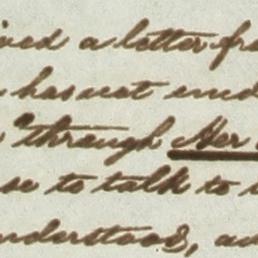 ived a letter fro
has not und
through Her
se to talk to
nderstood, an